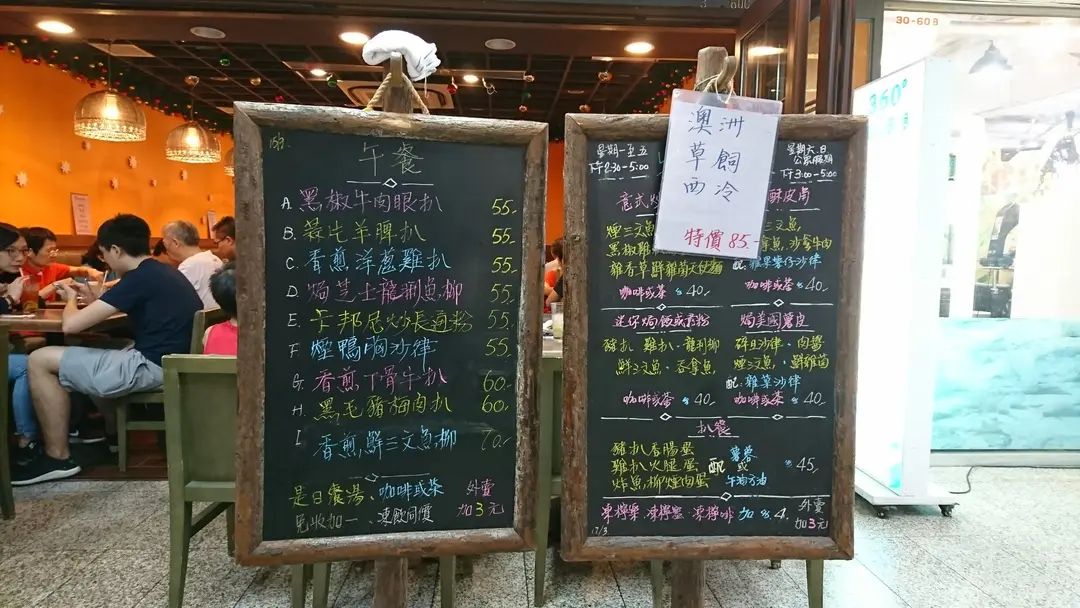 午餐
A. 黑椒牛肉眼扒 55.-
B. 蒜片羊脾扒 55.-
C. 香煎洋蔥雞扒 55.-
D. 焗芝士龍脷魚柳 55.-
E. 卡邦尼炒長通粉 55.-
F. 煙鴨胸沙律 55.-
G. 香煎T骨牛扒 60.-
H. 黑毛豬梅肉扒 60.-
I. 香煎鮮三文魚柳 70.-
是日餐湯、咖啡或茶
免收加一、凍飲同價
外賣
加3元
澳洲
草飼
西冷
特價85.-
星期一至五
下午2:30-5:00
星期六.日
公眾假期
下午3:00-5:00
意式
煙三文魚
黑椒雞
雜香草鮮雜菌天使麵
咖啡或茶 $40.-
酥皮角
三文魚
吞拿魚,沙嗲牛肉
配:雜果薯仔沙律
咖啡或茶 $40.-
迷你焗飯或意粉
豬扒 雞扒·龍利柳
鮮三文魚·吞拿魚
咖啡或茶 $40.-
焗美國薯皮
碎旦沙律·肉醬
煙三文魚·鮮雜菌
配:雜菜沙律
咖啡或茶 $40.-
扒餐
豬扒香腸蛋
雞扒火腿蛋
炸魚柳煙肉蛋
配
薯蓉
或
牛油方包
$45.-
凍檸樂·凍檸蜜·凍檸啡 加$4.
外賣
加3元
17/3
360°
30-60B